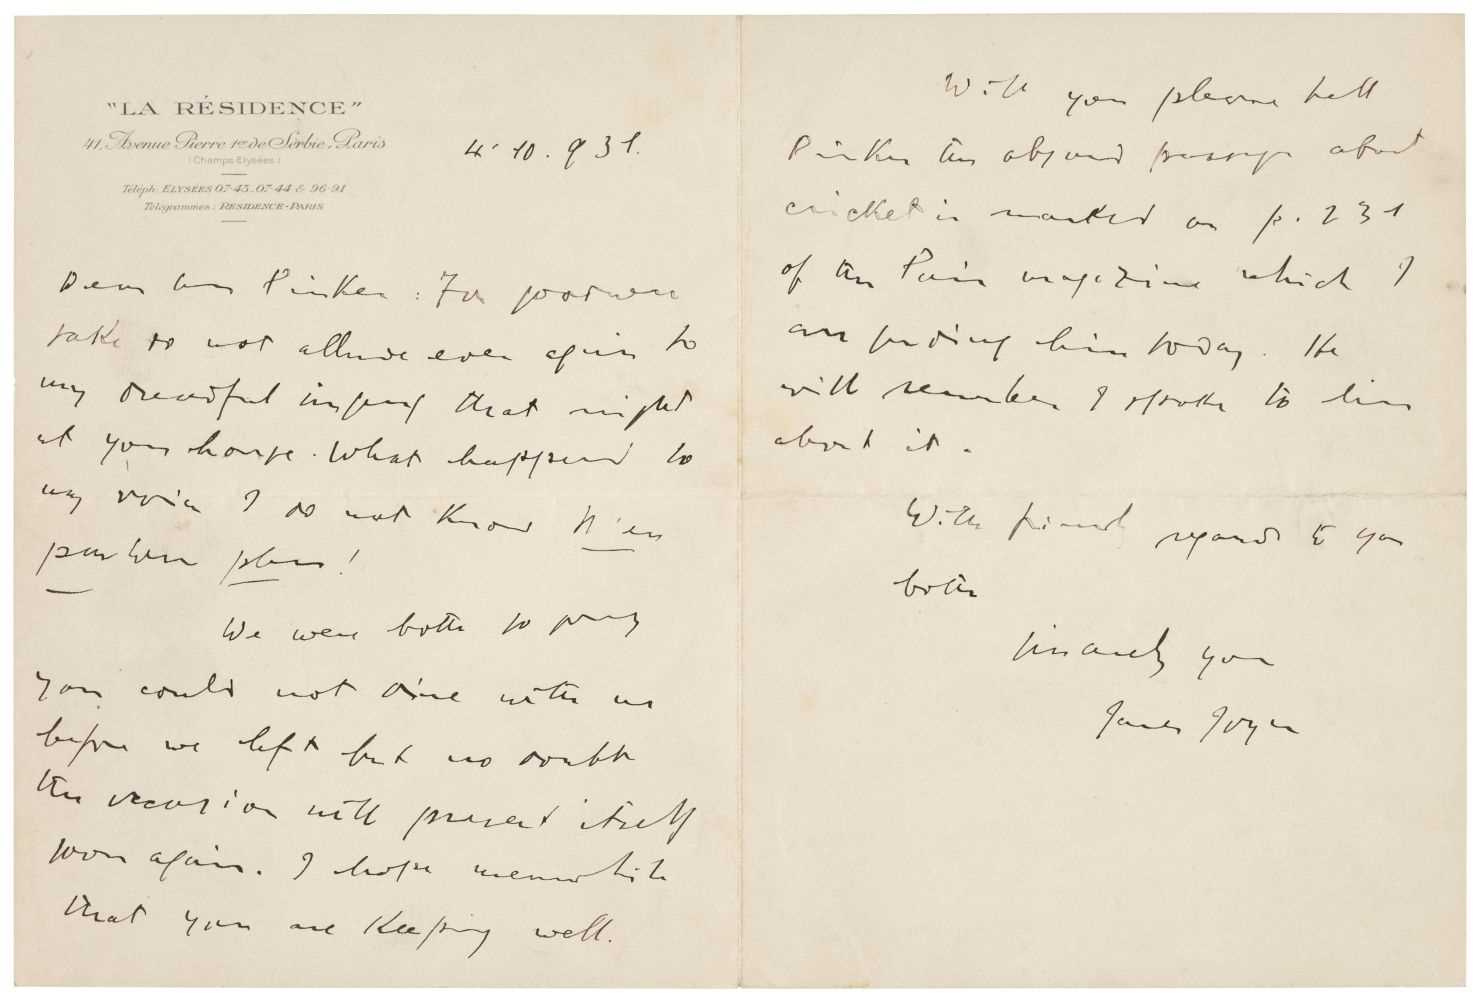 "LA RÉSIDENCE"
41, Avenue Pierre 1er de Serbie, Paris
(Champs Elysées)
Téléph: ELYSÉES 07-43..07-44 & 96-91
Télégrammes: RESIDENCE-PARIS
4.10.931.
Dear Mrs Pinker: For goodness
sake do not allude ever again to
my dreadful singing that night
at your house. What happened to
my voice I do not know N'en
parlons plus!
We were both so sorry
you could not dine with us
before we left but no doubt
the occasion will present itself
soon again. I hope meanwhile
that you are keeping well.
Will you please tell
Pinker the absurd passage about
cricket is marked on p. 231
of the Paris magazine which I
am sending him today. He
will remember I spoke to him
about it.
With friendly regards to you
both
sincerely yours
James Joyce